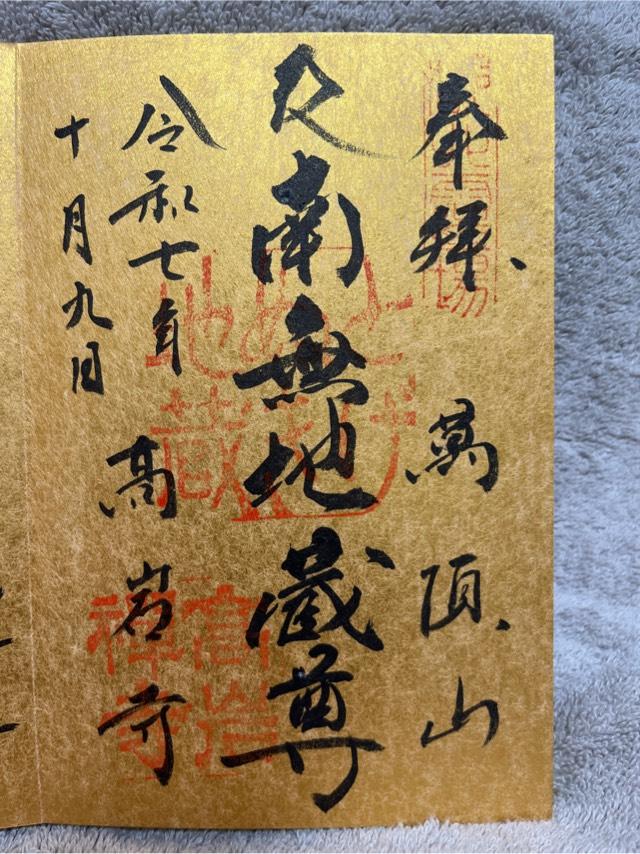 奉拝 萬頂山
南無地蔵尊
令和七年 高岩寺
十月九日
とげ
ぬき
地蔵
高岩
禪寺